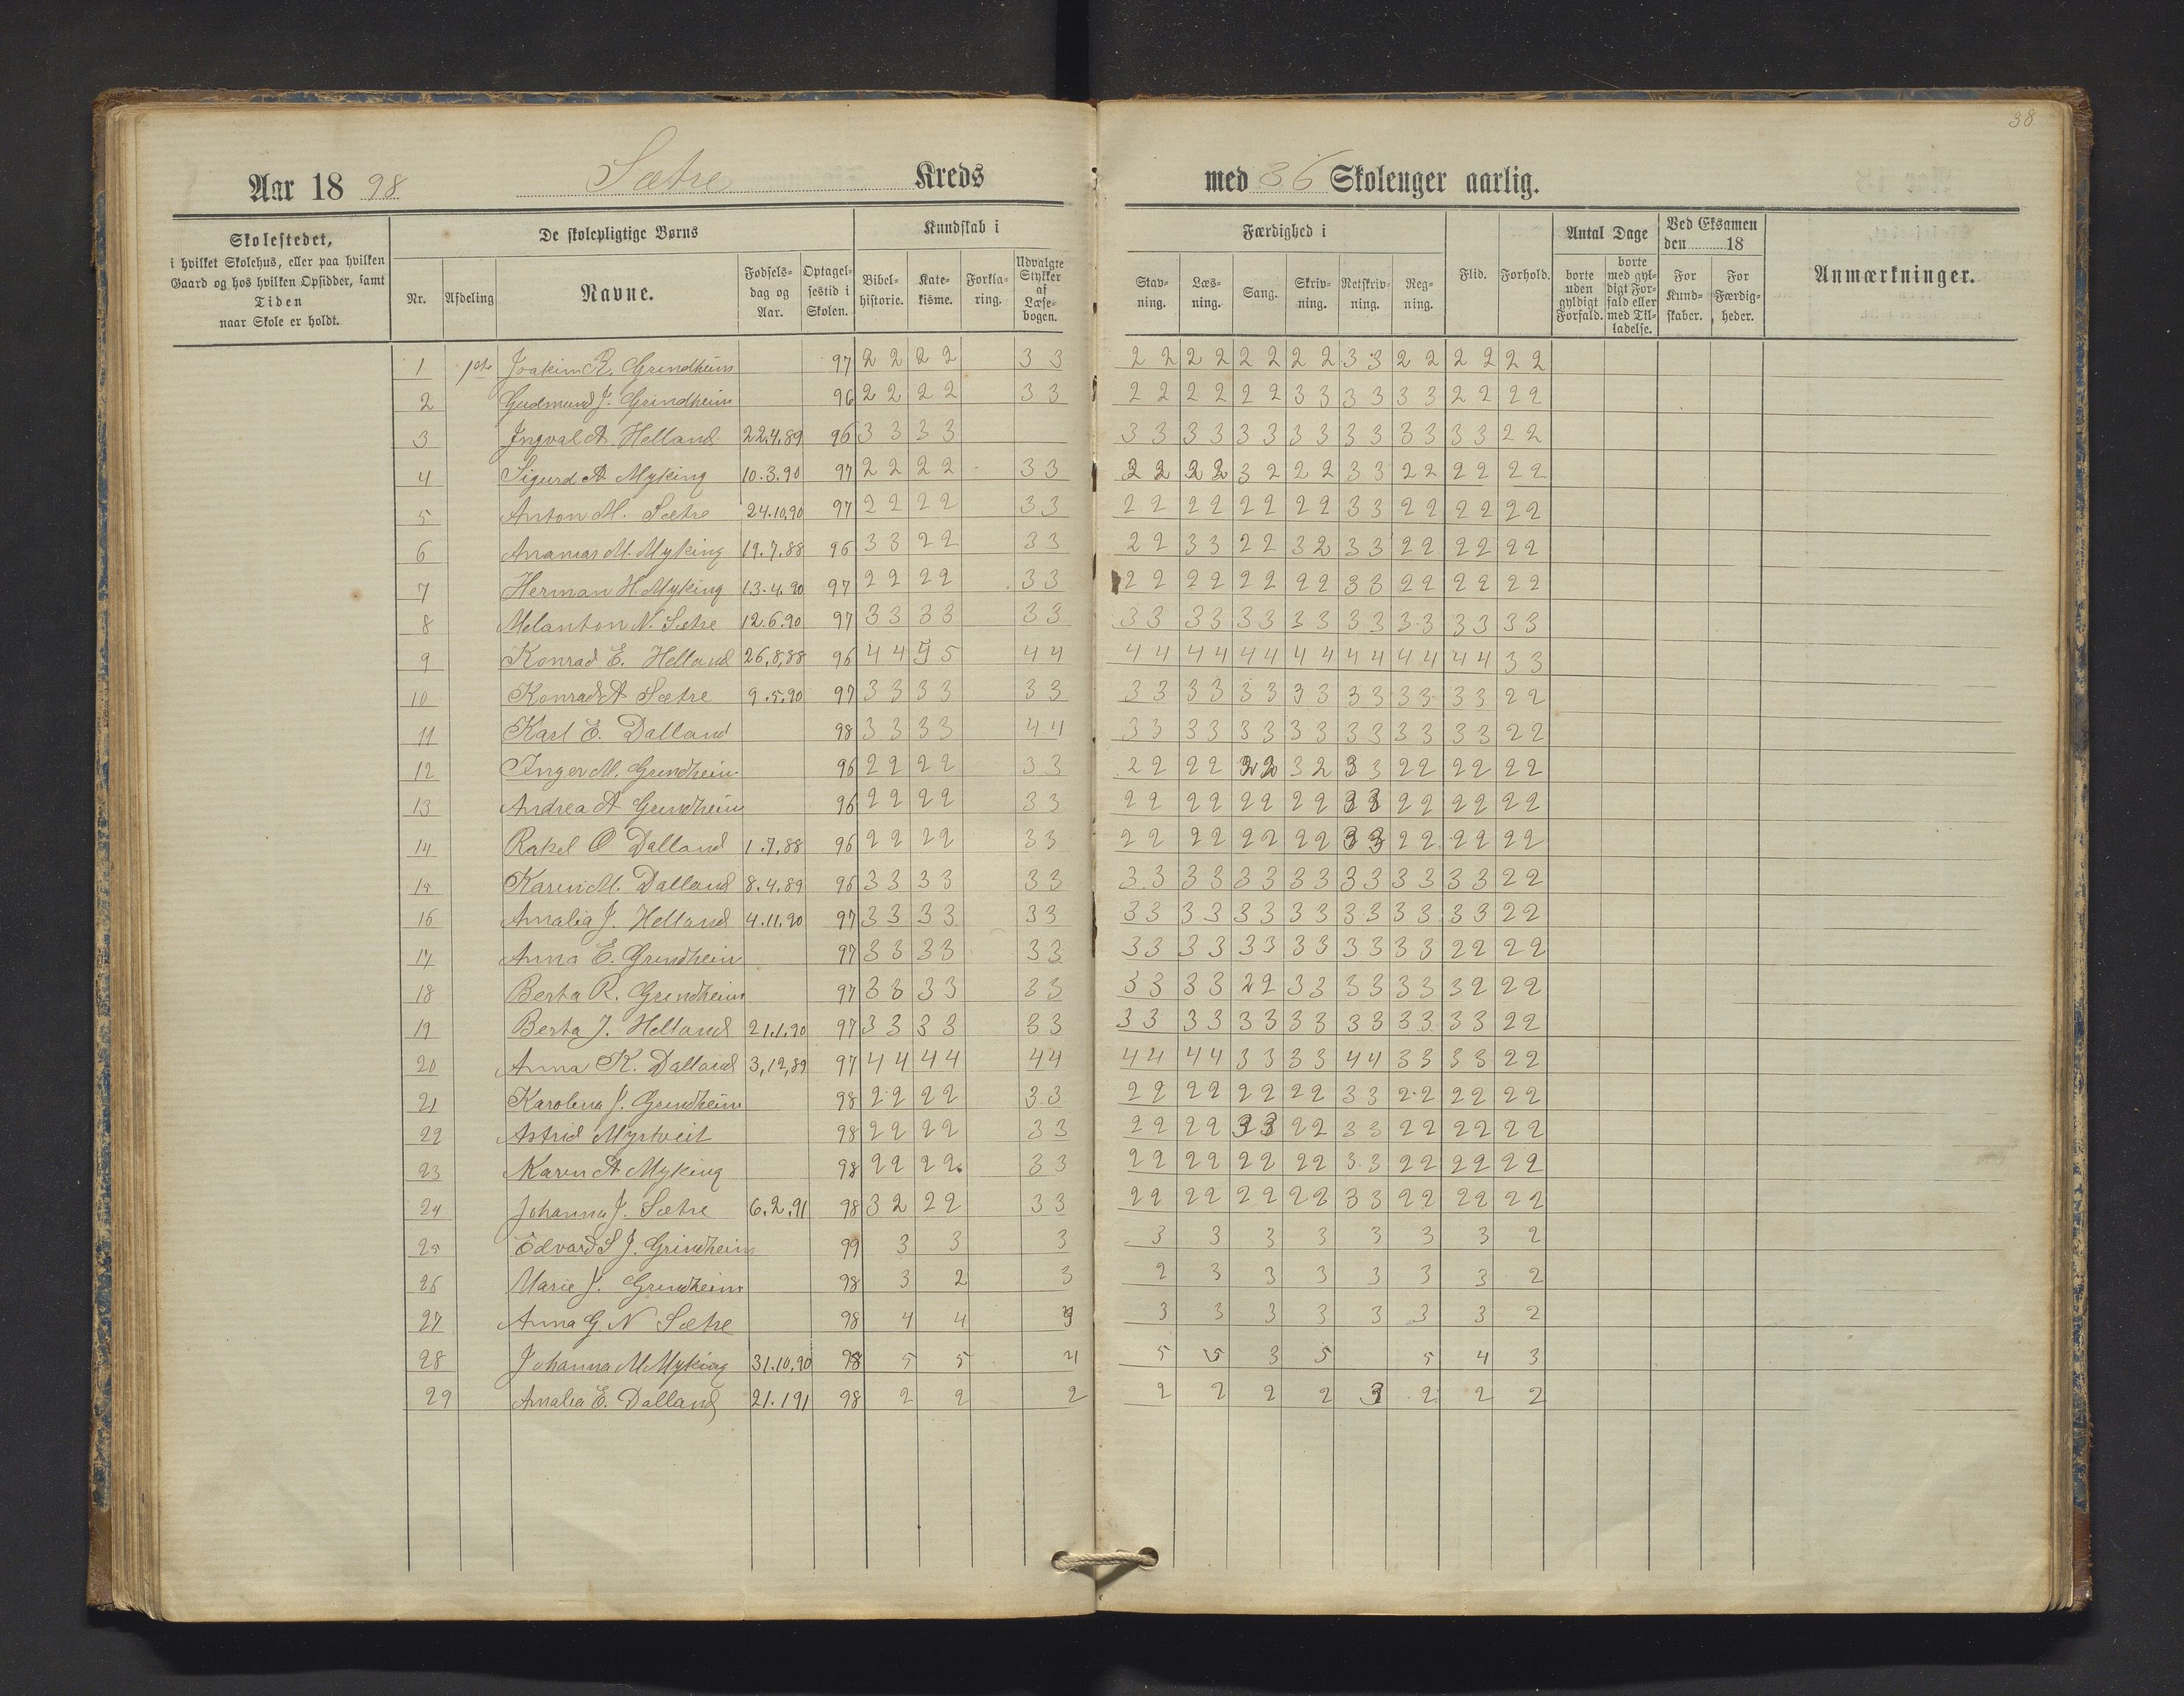 38
Aar 1898 Sætre Kreds med 36 Skoleuger aarlig.
Skolestedet, i hvilket Skolehus, eller paa hvilken Gaard og hos hvilken Opsidder, samt Tiden naar Skole er holdt.
De skolepligtige Børns
Kundskab i
Færdighed i
Nr. Afdeling Navne. Fødsels-dag og Aar. Optagel-sestid i Skolen. Bibel-historie. Kate-kisme. Forkla-ring. Udvalgte Stykker af Læse-bogen. Stav-ning. Læs-ning. Sang. Skriv-ning. Retskriv-ning. Reg-ning. Flid. Forhold. Antal Dage borte uden gyldigt Forfald. borte med gyl-digt For-fald eller med Til-ladelse. Ved Eksamen den 18 For Kund-skaber. For Færdig-heder. Anmærkninger.
1 1ste Joakim R. Grindheim 97 2 2 2 2 3 3 2 2 2 2 2 2 2 2 3 3 2 2 2 2 2 2
2 Gudmund J. Grindheim 96 2 2 2 2 3 3 2 2 2 2 2 2 3 3 3 3 3 3 2 2 2 2
3 Ingval A. Helland 22.4.89 96 3 3 3 3 3 3 3 3 3 3 3 3 3 3 3 3 3 3 2 2
4 Sigurd A Myking 10.3.90 97 2 2 2 2 3 3 2 2 2 2 3 2 2 2 3 3 2 2 2 2 2 2
5 Anton M. Sætre 24.10.90 97 2 2 2 2 3 3 2 2 2 2 2 2 2 2 3 3 2 2 2 2 2 2
6 Ananias M. Myking 19.7.88 96 3 3 2 2 3 3 2 2 3 3 2 2 3 2 3 3 2 2 2 2 2 2
7 Herman H. Myking 13.4.90 97 2 2 2 2 3 3 2 2 2 2 2 2 2 2 3 3 2 2 2 2 2 2
8 Melanton N. Sætre 12.6.90 97 3 3 3 3 3 3 3 3 3 3 3 3 3 3 3 3 3 3 3 3 3 3
9 Konrad E. Helland 26.8.88 96 4 4 5 5 4 4 4 4 4 4 4 4 4 4 4 4 4 4 4 4 3 3
10 Konrad A Sætre 9.5.90 97 3 3 3 3 3 3 3 3 3 3 3 3 3 3 3 3 3 3 3 3 2 2
11 Karl E. Dalland 98 3 3 3 3 4 4 3 3 3 3 3 3 3 3 3 3 3 3 3 3 2 2
12 Inger M. Grindheim 96 2 2 2 2 3 3 2 2 2 2 2 2 3 2 3 3 2 2 2 2 2 2
13 Andrea A Grindheim 96 2 2 2 2 3 3 2 2 2 2 2 2 2 2 3 3 2 2 2 2 2 2
14 Rakel O Dalland 1.7.88 96 2 2 2 2 3 3 2 2 2 2 2 2 2 2 3 3 2 2 2 2 2 2
15 Karen M. Dalland 8.4.89 96 3 3 3 3 3 3 3 3 3 3 3 3 3 3 3 3 3 3 3 3 2 2
16 Amalia J. Helland 4.11.90 97 3 3 3 3 3 3 3 3 3 3 3 3 3 3 3 3 3 3 3 3 2 2
17 Anna E. Grindheim 97 3 3 3 3 3 3 3 3 3 3 3 3 3 3 3 3 3 3 2 2 2 2
18 Berta R. Grindheim 97 3 3 3 3 3 3 3 3 3 3 2 2 3 3 3 3 3 3 3 2 2 2
19 Berta J. Helland 21.1.90 97 3 3 3 3 3 3 3 3 3 3 3 3 3 3 3 3 3 3 3 3 2 2
20 Anna K. Dalland 3,12,89 97 4 4 4 4 4 4 4 4 4 4 3 3 3 3 4 4 3 3 3 3 2 2
21 Karolina J. Grindheim 98 2 2 2 2 3 3 2 2 2 2 2 2 2 2 3 3 2 2 2 2 2 2
22 Astrid Myrtveit 98 2 2 2 2 3 3 2 2 2 2 3 3 2 2 3 3 2 2 2 2 2 2
23 Karen A Myking 98 2 2 2 2 3 3 2 2 2 2 2 2 2 2 3 3 2 2 2 2 2 2
24 Johanna J. Sætre 6.2.91 98 3 2 2 2 3 3 2 2 2 2 2 2 2 2 3 3 2 2 2 2 2 2
25 Edvard S J. Grindheim 99 3 3 3 3 3 3 3 3 3 3 2
26 Marie J. Grindheim 98 3 2 3 2 3 3 3 3 3 3 2
27 Anna G N Sætre 98 4 4 3 3 3 3 3 3 3 2
28 Johanna M Myking 31.10.90 98 5 5 4 5 5 3 5 5 4 3
29 Amalia E. Dalland 21.1 91 98 2 2 2 2 2 2 2 3 2 2 2